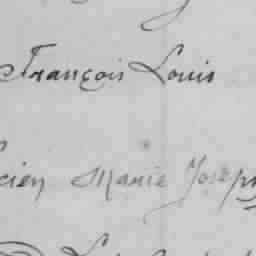 François Louis
cien Marie Joseph